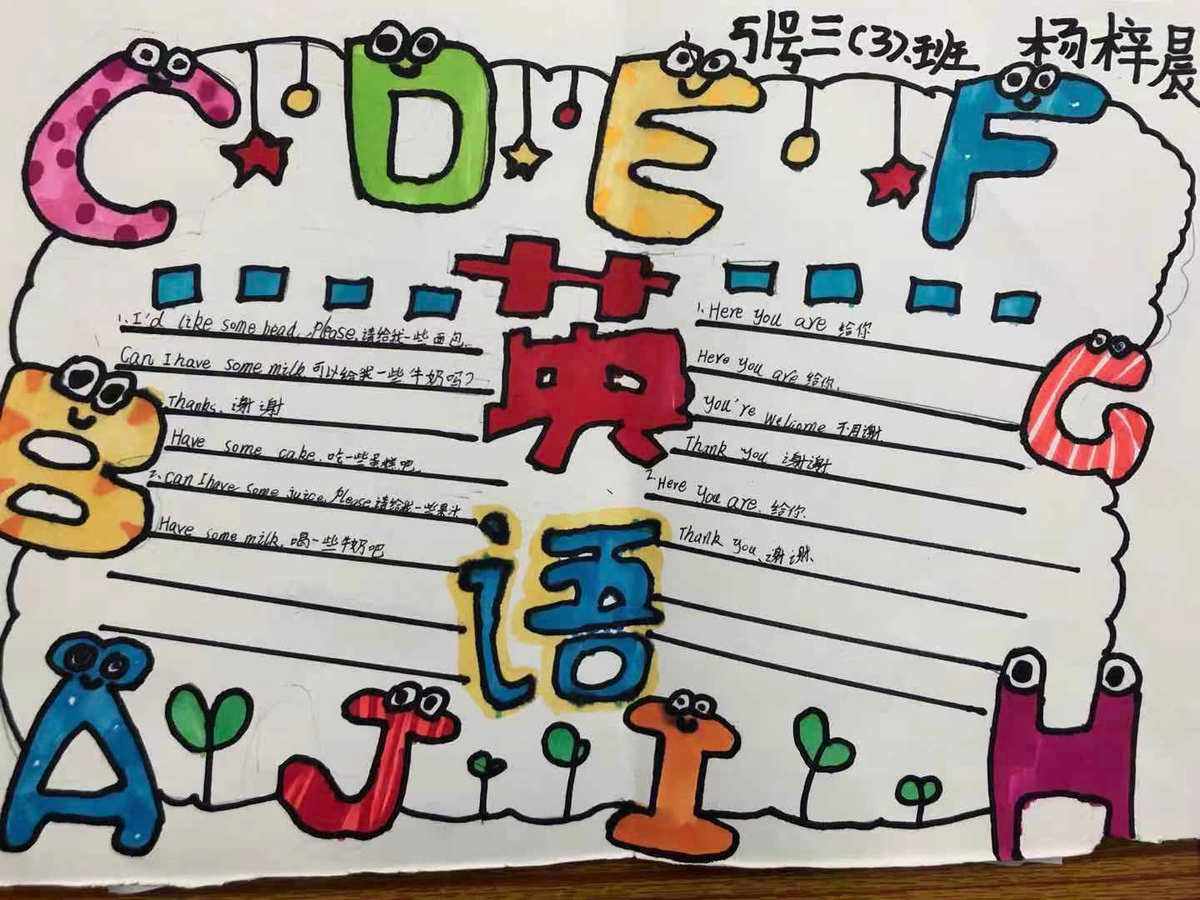 51号三(3)班 杨梓晨
C D E F
英语
1、I'd like some head, please, 请给我一些面包.
Can I have some milk 可以给我一些牛奶吗?
Thanks. 谢谢
Have some cake. 吃一些蛋糕吧.
2、can I have some juice, please, 请给我一些果汁
Have some milk. 喝一些牛奶吧
1、Here you are 给你
Here you are 给你.
you're welcome 不用谢
Thank you 谢谢
2、Here you are. 给你
Thank you 谢谢.
B G
A J I H